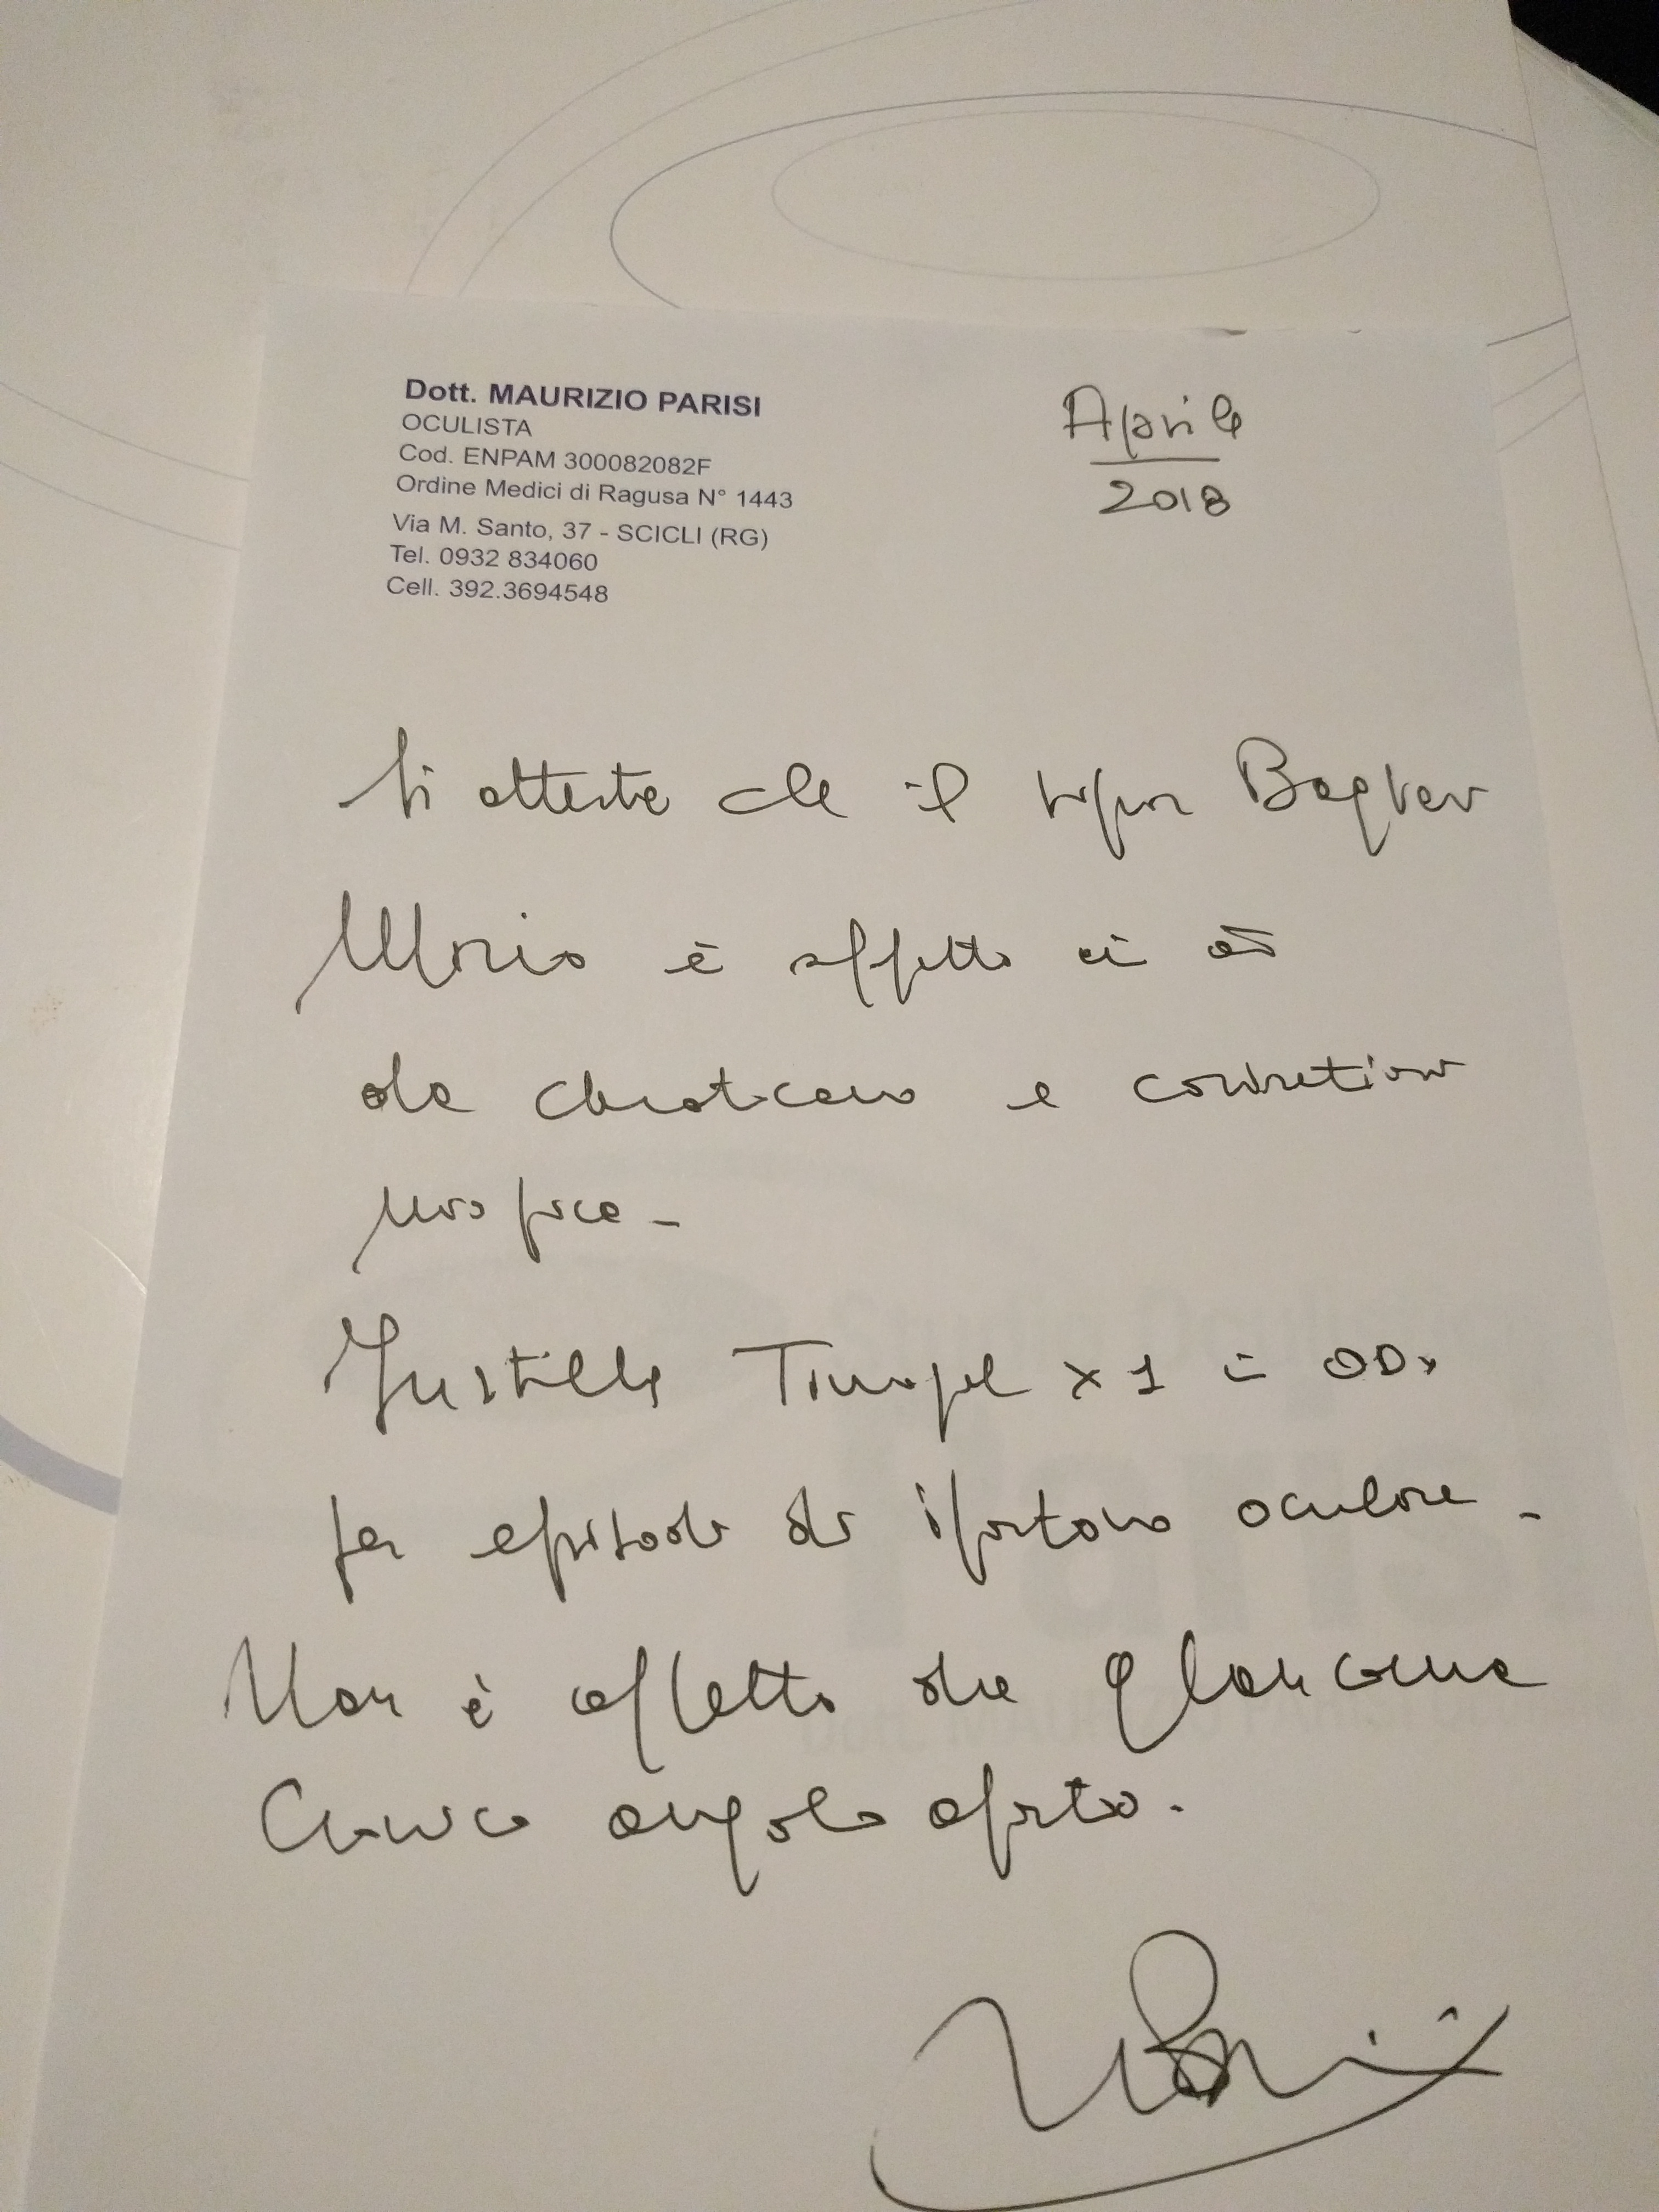 Dott. MAURIZIO PARISI
OCULISTA
Cod. ENPAM 300082082F
Ordine Medici di Ragusa N° 1443
Via M. Santo, 37 - SCICLI (RG)
Tel. 0932 834060
Cell. 392.3694548
Aprile
2018
Si atteste che il signor
Mario è affetto in
da cheratocono e
miopica -
Instilla Timogel x 1 in OD
per episodi di ipertono oculare -
Non è affetto da glaucoma
Cronico angolo aperto.